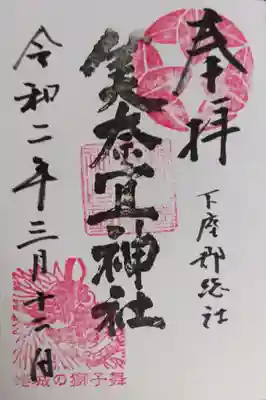 奉拝
下座郡総社
美奈宜神社
令和二年三月十二日
蜷城の獅子舞